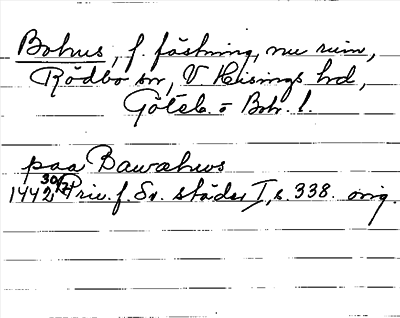 Bohus, f. fästning, nu ruin,
Rödbo sn, V. Hisings hd,
Göteb. o Boh. l.
paa Bawahws
1442 30/7 Priv. f. Sv. städer I, s. 338. orig.